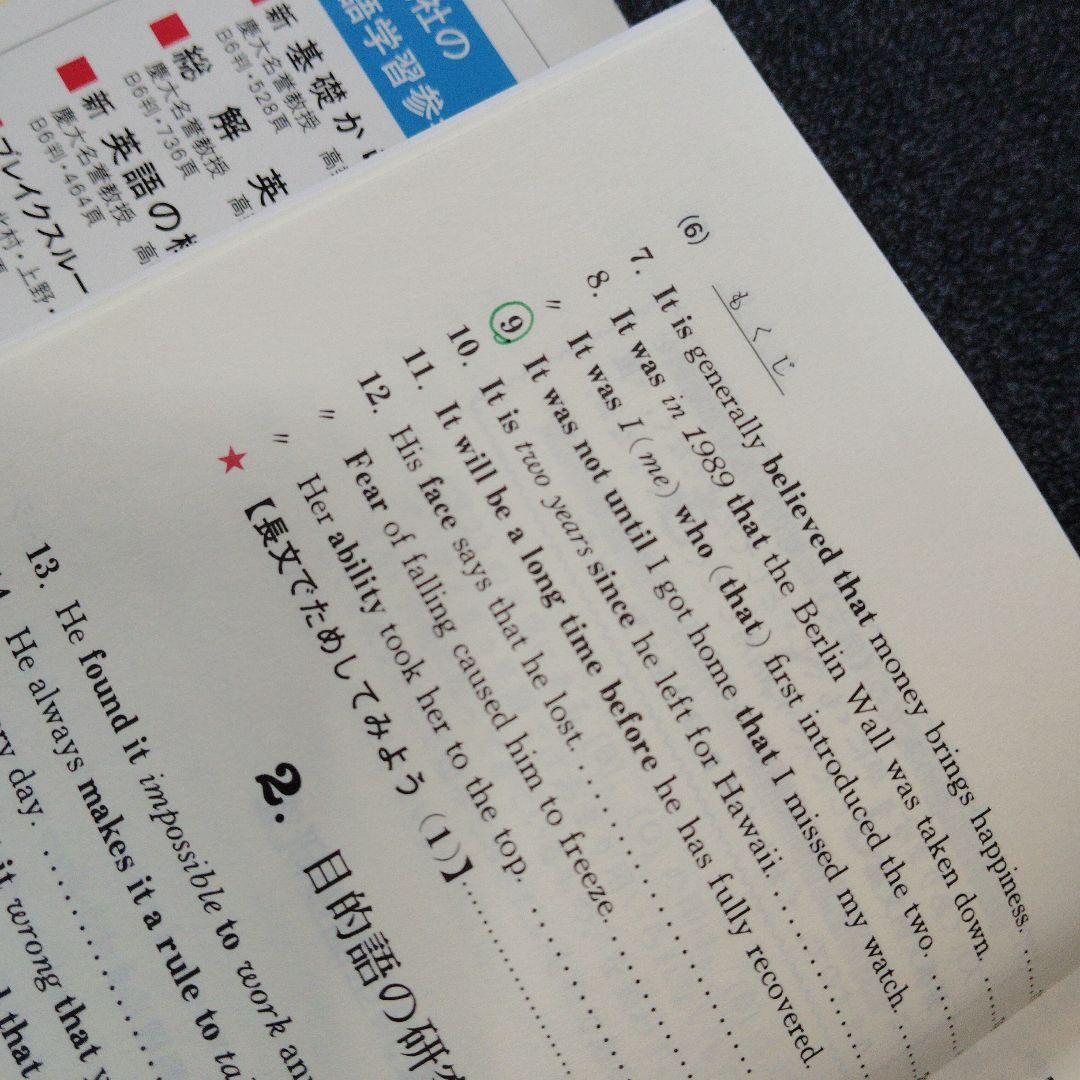 社の
語学習参
新 基礎か
慶大名誉教授
B6判・528頁
高
総 解 英
慶大名誉教授
B6判・736頁
高
新 英語の
慶大名誉教授
B6判・464頁
高
ブレイクスルー
北村・上野・
(6) もくじ
7. It is generally believed that money brings happiness. ......
8. It was in 1989 that the Berlin Wall was taken down. ......
〃 It was I (me) who (that) first introduced the two. ......
9. It was not until I got home that I missed my watch. ......
10. It is two years since he left for Hawaii. ......
11. It will be a long time before he has fully recovered.
12. His face says that he lost. ......
〃 Fear of falling caused him to freeze. ......
〃 Her ability took her to the top. ......
★【長文でためしてみよう (1)】......
2. 目的語の研
13. He found it impossible to work
He always makes it a rule to
day. ......
it wrong that
that